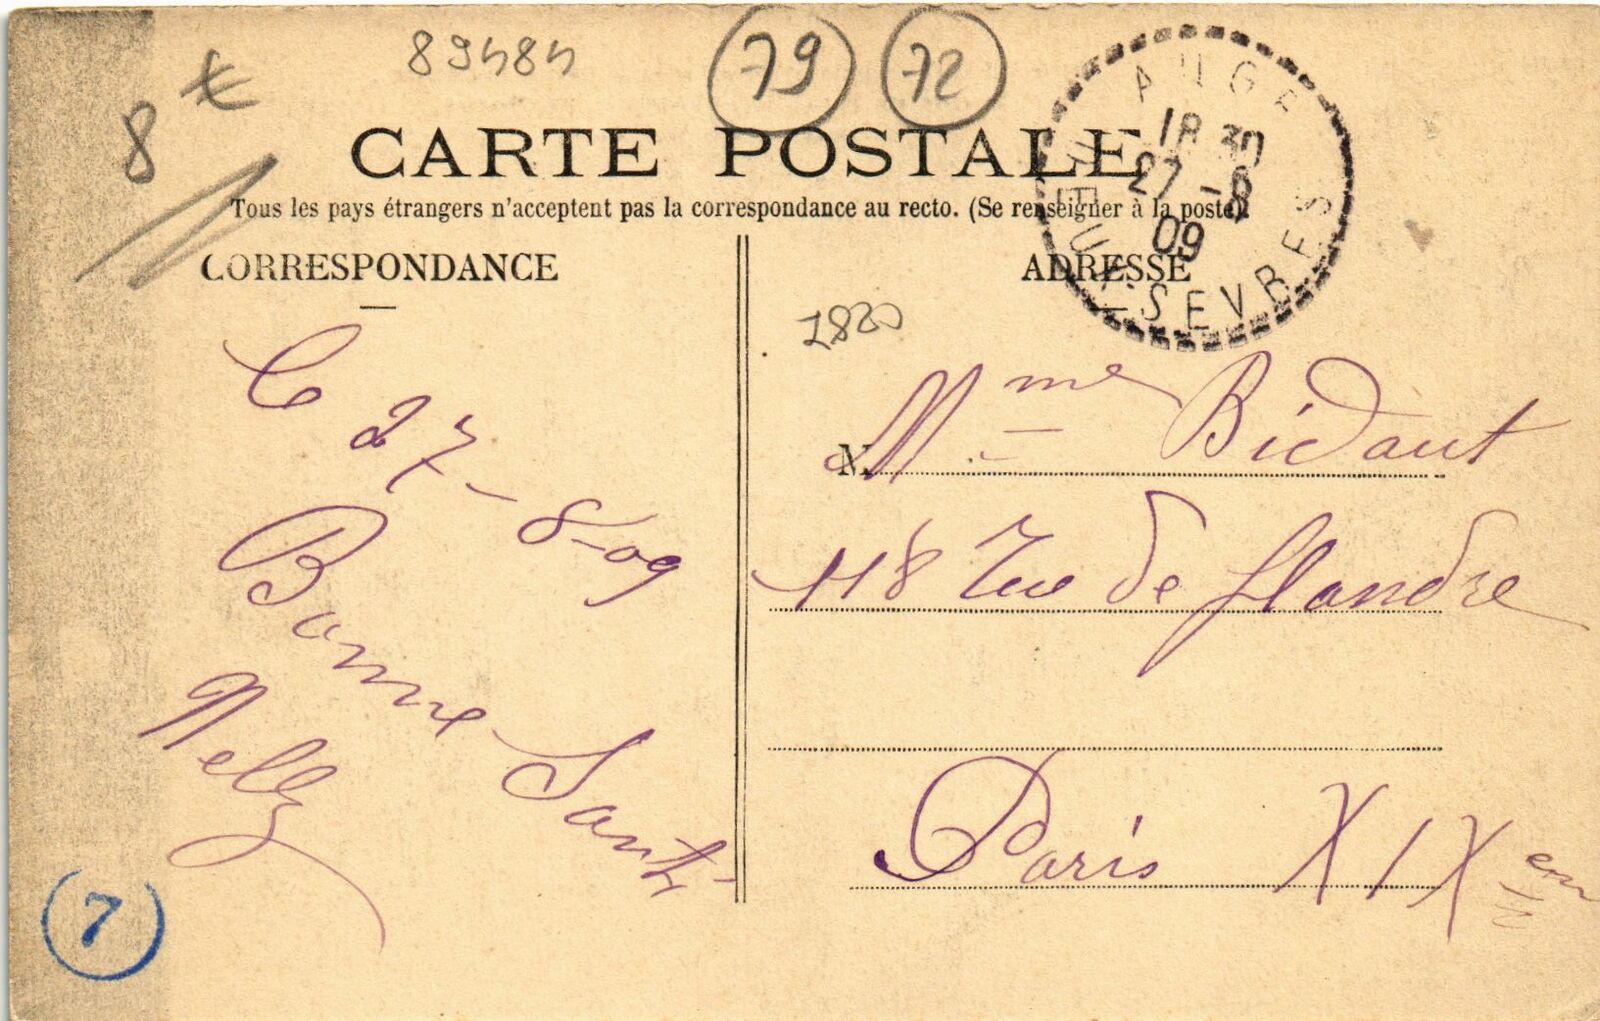 89484
79
72
8 €
CARTE POSTALE
Tous les pays étrangers n'acceptent pas la correspondance au recto. (Se renseigner à la poste).
AUGE
18 30
27 - 8
09
DEUX-SEVRES
CORRESPONDANCE
ADRESSE
Le 27-8-09
Bonne Santé
Nelly
7
M.
Mme Bidaut
118 Rue de Flandre
Paris XIXem